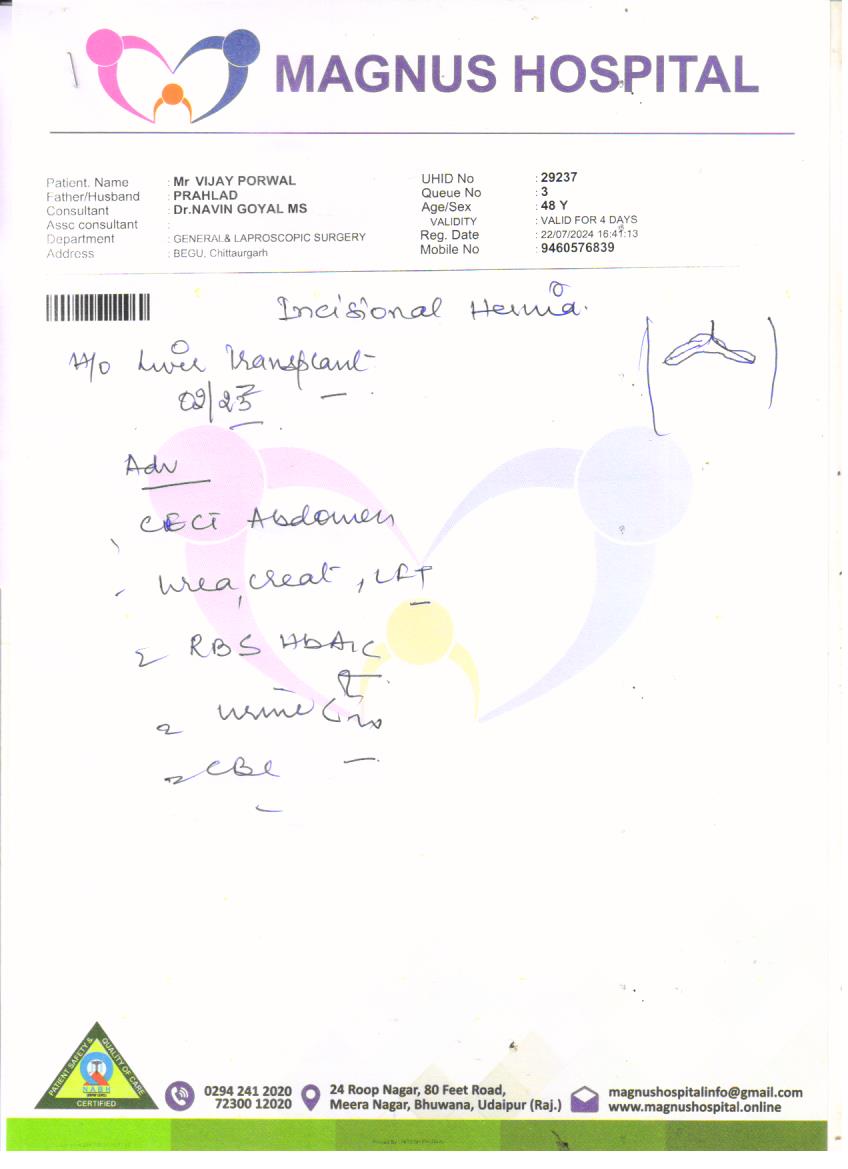 MAGNUS HOSPITAL
Patient. Name : Mr VIJAY PORWAL
Father/Husband : PRAHLAD
Consultant : Dr.NAVIN GOYAL MS
Assc consultant :
Department : GENERAL& LAPROSCOPIC SURGERY
Address : BEGU, Chittaurgarh
UHID No : 29237
Queue No : 3
Age/Sex : 48 Y
VALIDITY : VALID FOR 4 DAYS
Reg. Date : 22/07/2024 16:41:13
Mobile No : 9460576839
Incisional Hernia.
H/o Liver Transplant
02/23
Adv
CECT Abdomen
Urea, creat, LFT
RBS HbA1C
Urine
CBC
PATIENT SAFETY & QUALITY OF CARE
NABH
CERTIFIED
0294 241 2020
72300 12020
24 Roop Nagar, 80 Feet Road,
Meera Nagar, Bhuwana, Udaipur (Raj.)
magnushospitalinfo@gmail.com
www.magnushospital.online